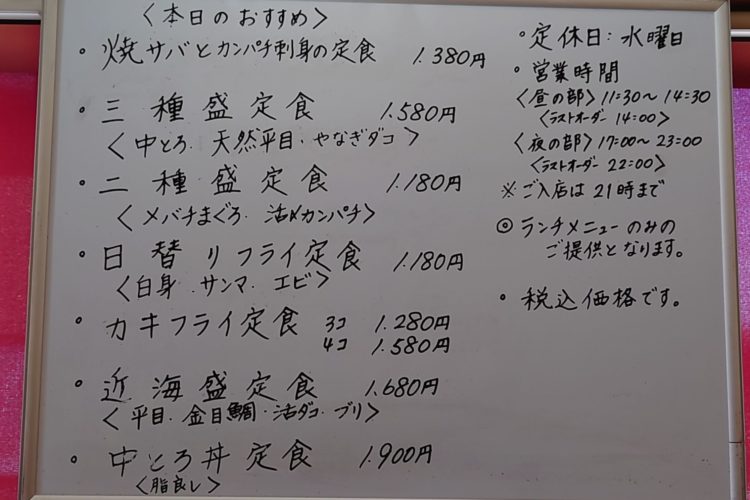 〈本日のおすすめ〉
・焼サバとカンパチ刺身の定食 1.380円
・三種盛定食 1.580円
〈中とろ．天然平目．やなぎダコ〉
・二種盛定食 1.180円
〈メバチまぐろ．活〆カンパチ〉
・日替りフライ定食 1.180円
〈白身．サンマ．エビ〉
・カキフライ定食 3コ 1.280円
4コ 1.580円
・近海盛定食 1.680円
〈平目．金目鯛．活ダコ．ブリ〉
・中とろ丼定食 1.900円
〈脂良し〉
・定休日：水曜日
・営業時間
〈昼の部〉11:30～14:30
〈ラストオーダー 14:00〉
〈夜の部〉17:00～23:00
〈ラストオーダー 22:00〉
※ご入店は21時まで
◎ランチメニューのみの
ご提供となります。
・税込価格です。